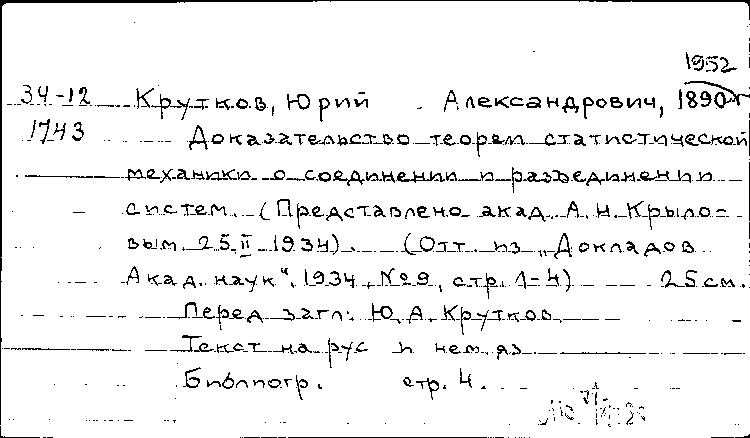 1952
34-12 Крутков, Юрий Александрович, 1890-
1743 Доказательство теорем статистической
механики о соединении и разъединении
систем. (Представлено акад. А. Н. Крыло-
вым 25.II 1934). (Отт. из „Докладов
Акад. наук“. 1934, № 9, стр. 1-4) 25 см.
Перед загл.: Ю. А. Крутков
Текст на рус и нем. яз
Библиогр. стр. 4.